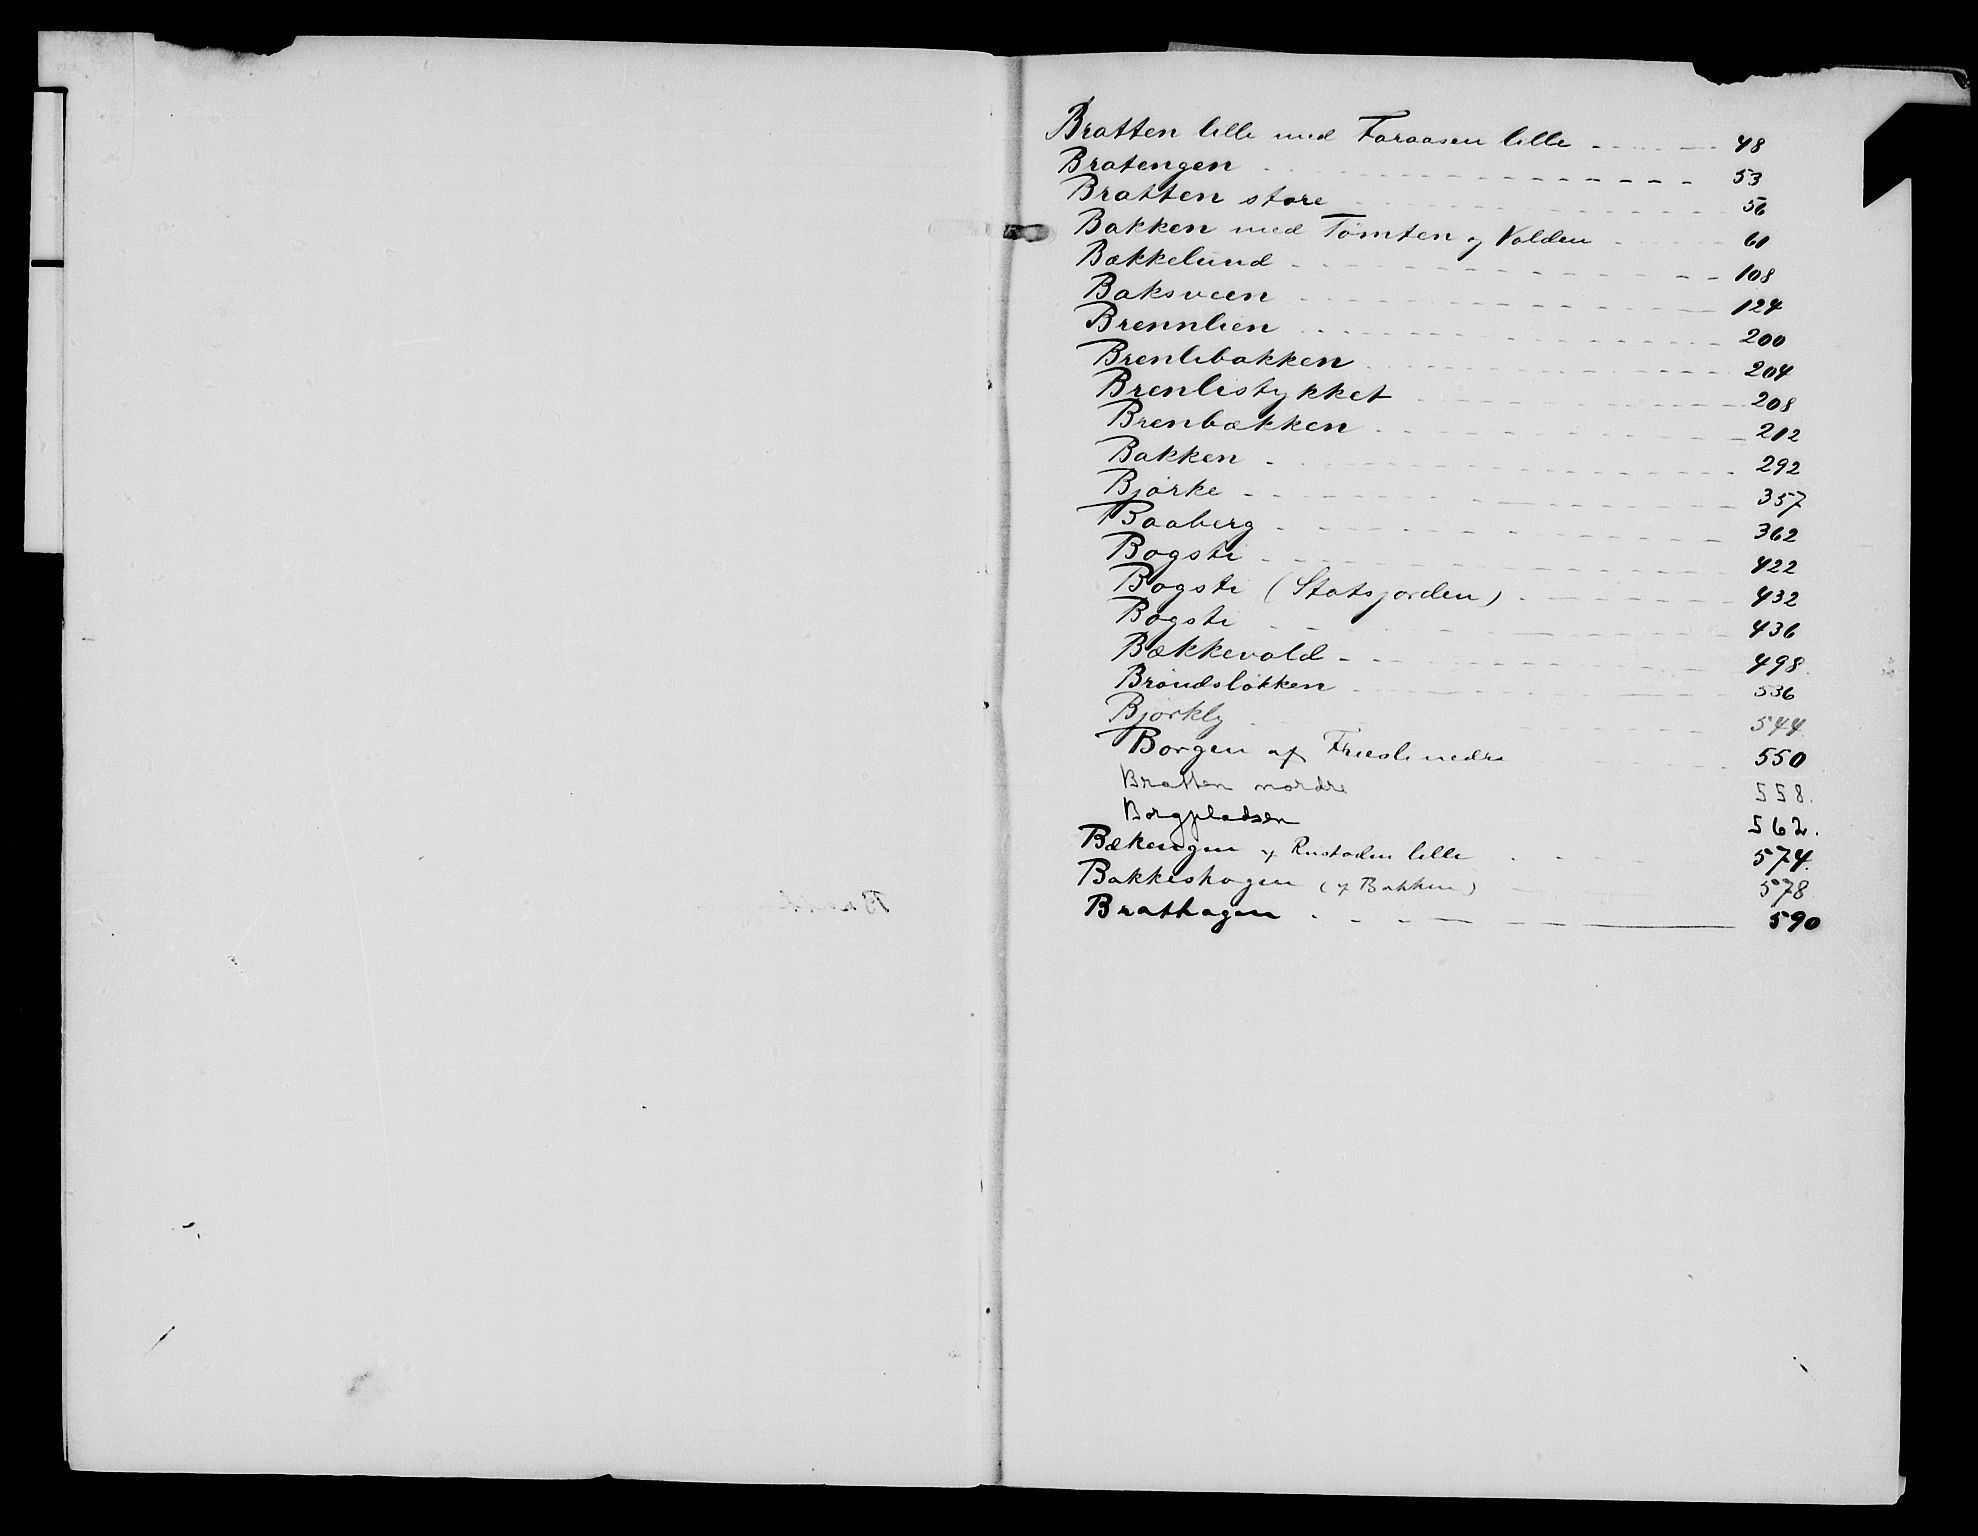 Bratten lille med Faraasen lille 48
Bratengen 53
Bratten store 56
Bakken med Tømten og Volden 61
Bækkelund 108
Baksveen 124
Brennlien 200
Brenlibakken 204
Brenlistykket 208
Brenbækken 212
Bakken 292
Bjørke 357
Baaberg 362
Bogsti 422
Bogsti (Statsjorden) 432
Bogsti 436
Bækkevold 498
Brøndsløkken 536
Bjørkly 544
Borgen af Friesli nedre 550
Bratten nordre 558.
Borgpladsen 562.
Bækengen af Rustaden lille 574.
Bakkeshagen (af Bakken) 578
Brathagen 590